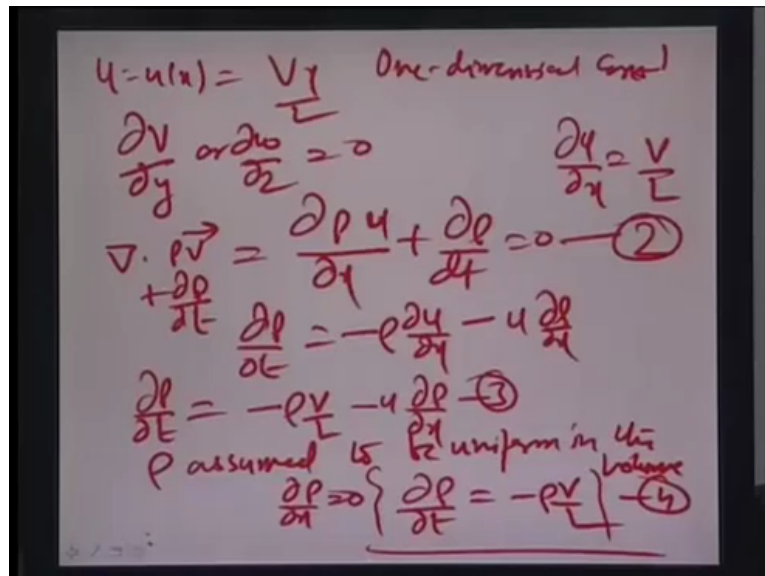 u = u(x) = Vx/L One-dimensional
∂v/∂y or ∂w/∂z = 0 ∂u/∂x = V/L
∇ · ρv⃗ + ∂ρ/∂t = ∂ρu/∂x + ∂ρ/∂t = 0 — ②
∂ρ/∂t = -ρ ∂u/∂x - u ∂ρ/∂x
∂ρ/∂t = -ρ V/L - u ∂ρ/∂x — ③
ρ assumed to be uniform in the volume
∂ρ/∂x = 0 { ∂ρ/∂t = -ρ V/L } — ④